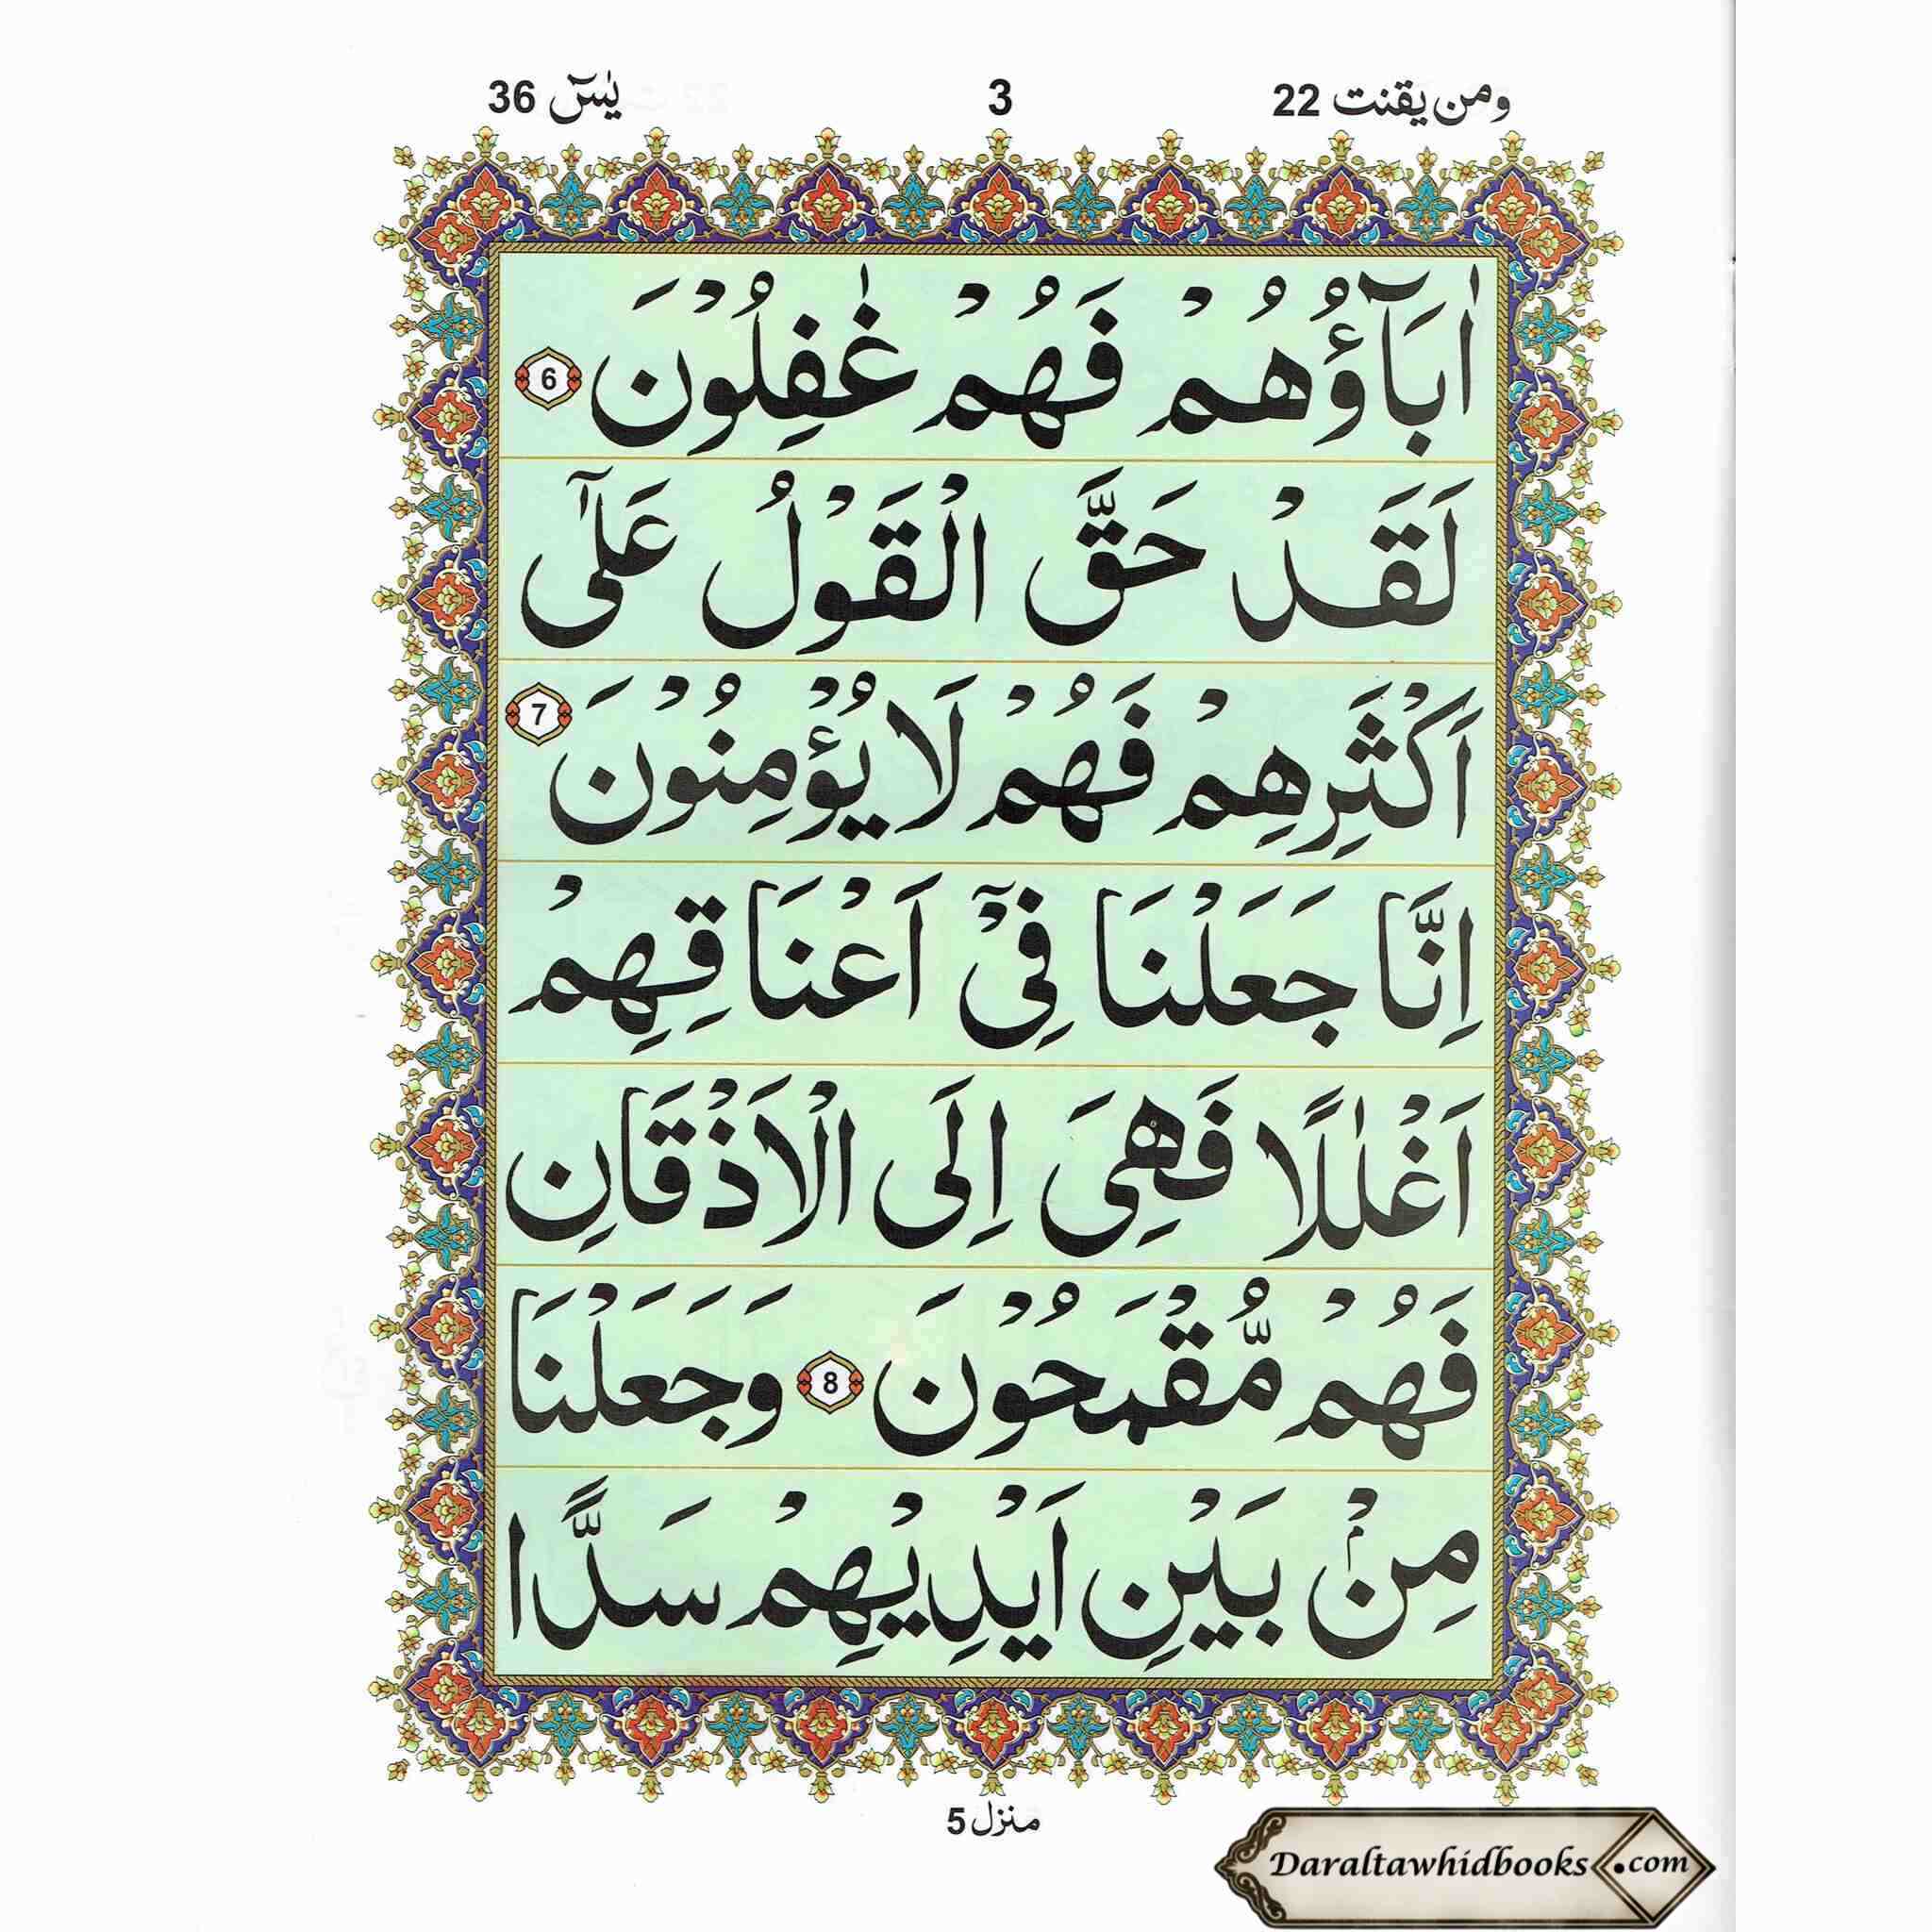 ومن يقنت 22 3 يٰسٓ 36
اٰبَآؤُهُمْ فَهُمْ غٰفِلُوْنَ 6
لَقَدْ حَقَّ الْقَوْلُ عَلٰٓى
اَكْثَرِهِمْ فَهُمْ لَا يُؤْمِنُوْنَ 7
اِنَّا جَعَلْنَا فِيْٓ اَعْنَاقِهِمْ
اَغْلٰلًا فَهِيَ اِلَى الْاَذْقَانِ
فَهُمْ مُّقْمَحُوْنَ 8 وَجَعَلْنَا
مِنْۢ بَيْنِ اَيْدِيْهِمْ سَدًّا
منزل 5
Daraltawhidbooks.com